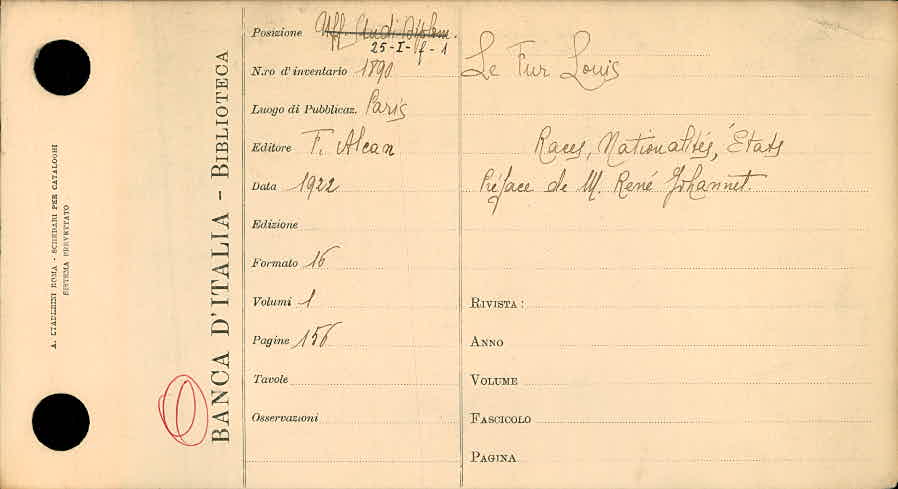 A. STADERINI ROMA - SCHEDARI PER CATALOGHI
SISTEMA BREVETTATO
BANCA D'ITALIA - BIBLIOTECA
Posizione Uff. Studi
25-I-f-1
N.ro d'inventario 1890
Luogo di Pubblicaz. Paris
Editore F. Alcan
Data 1922
Edizione
Formato 16
Volumi 1
Pagine 156
Tavole
Osservazioni
Le Fur Louis
Races, Nationalités, États
Préface de M. René Johannet
RIVISTA :
ANNO
VOLUME
FASCICOLO
PAGINA